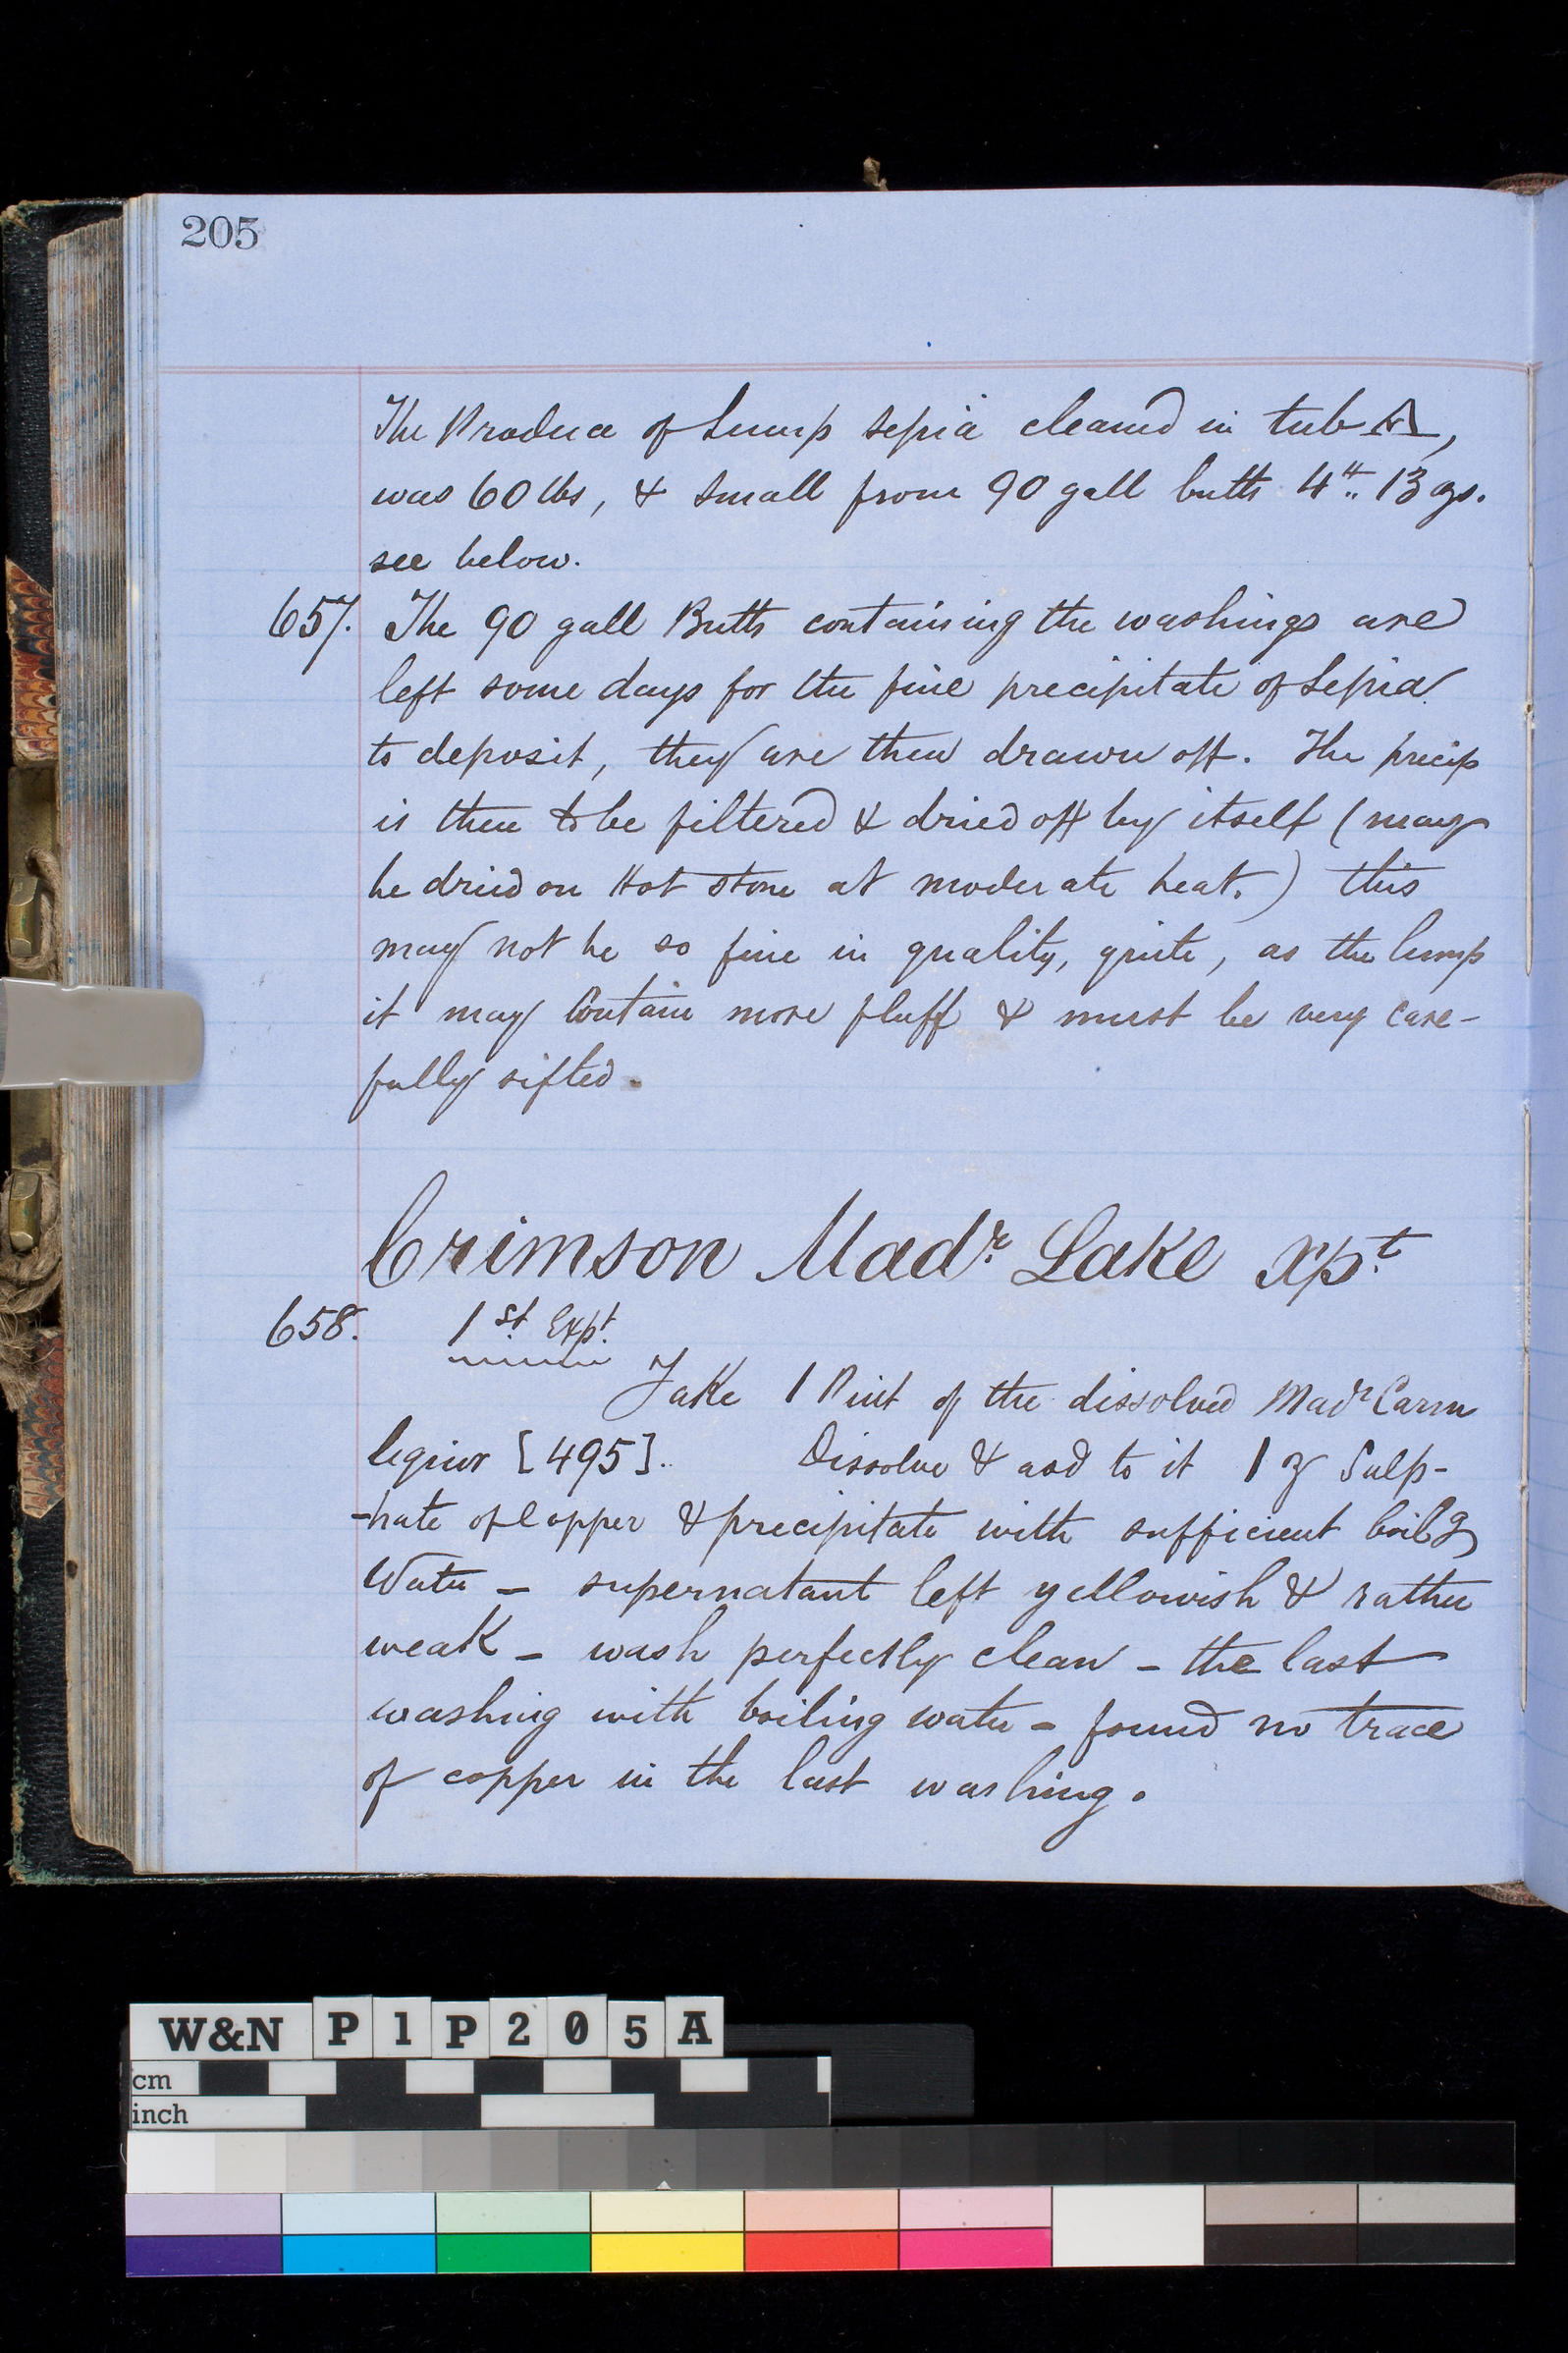 205
The Produce of Lump Sepia cleaned in tub A,
was 60 lbs, & small from 90 gall butts 4tt.. 13 ozs.
see below.
657. The 90 gall Butts containing the washings are
left some days for the fine precipitate of Sepia
to deposit, they are then drawn off. The precip
is then to be filtered & dried off by itself (may
be dried on Hot stone at moderate heat.) this
may not be so fine in quality, quite, as the lump
it may contain more fluff & must be very care-
fully sifted.
Crimson Madr. Lake Xpt.
658. 1st. Expt.
Take 1 Pint of the dissolved Madr Carm
liquor [495]. Dissolve & add to it 1 oz Sulp-
-hate of Copper & precipitate with sufficient boilg
Water - supernatant left yellowish & rather
weak - wash perfectly clean - the last
washing with boiling water - found no trace
of copper in the last washing.
W&N P1P205A
cm
inch